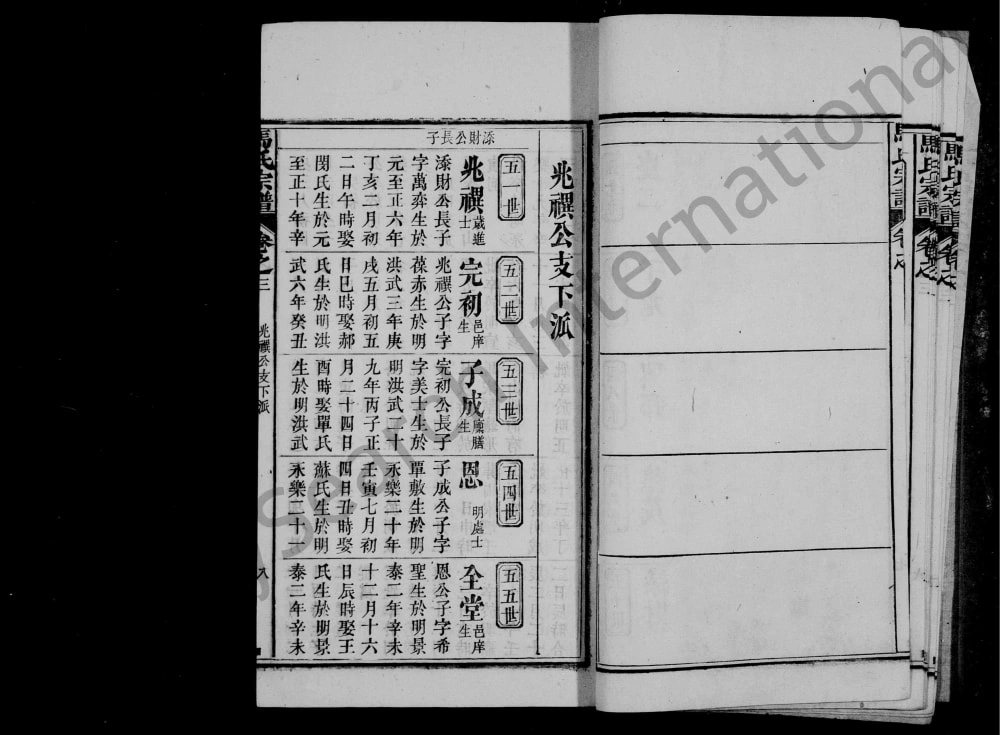 兆禩公支下派
添財公長子
五一世
兆禩 歲進士
添財公長子
字萬弈生於
元至正六年
丁亥二月初
二日午時娶
閔氏生於元
至正十年辛
五二世
完初 邑庠生
兆禩公子字
葆赤生於明
洪武三年庚
戌五月初五
日巳時娶郝
氏生於明洪
武六年癸丑
五三世
子成 廩膳生
完初公長子
字美士生於
明洪武二十
九年丙子正
月二十四日
酉時娶單氏
生於明洪武
五四世
恩 明處士
子成公子字
單敷生於明
永樂二十年
壬寅七月初
四日丑時娶
蘇氏生於明
永樂二十一
五五世
全堂 邑庠生
恩公子字希
聖生於明景
泰二年辛未
十二月十六
日辰時娶王
氏生於明景
泰二年辛未
馬氏宗譜
卷之三
兆禩公支下派
八
馬氏宗譜
卷之
馬氏宗譜
卷之
馬氏宗譜
卷之
Search International